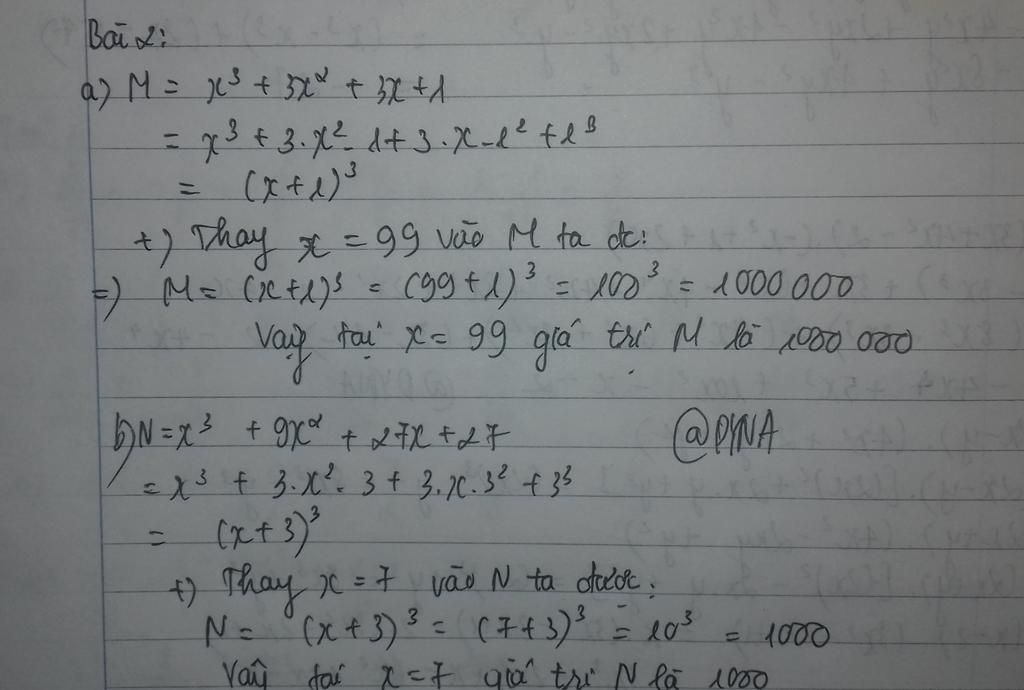 Bài 2:
a) M = x³ + 3x² + 3x + 1
= x³ + 3.x² - 1 + 3.x - 1² + 1³
= (x+1)³
+) Thay x = 99 vào M ta đc:
=) M = (x+1)³ = (99+1)³ = 100³ = 1000 000
Vậy tại x = 99 giá trị M là 1000 000
b) N = x³ + 9x² + 27x + 27
@DYNA
= x³ + 3.x². 3 + 3.x.3² + 3³
= (x+3)³
+) Thay x = 7 vào N ta được:
N = (x+3)³ = (7+3)³ = 10³ = 1000
Vậy tại x = 7 giá trị N là 1000